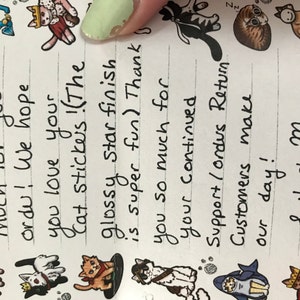 order! We hope
you love your
cat stickers! (The
glossy star finish
is super fun) Thank
you so much for
your continued
Support/orders Return
Customers make
our day!